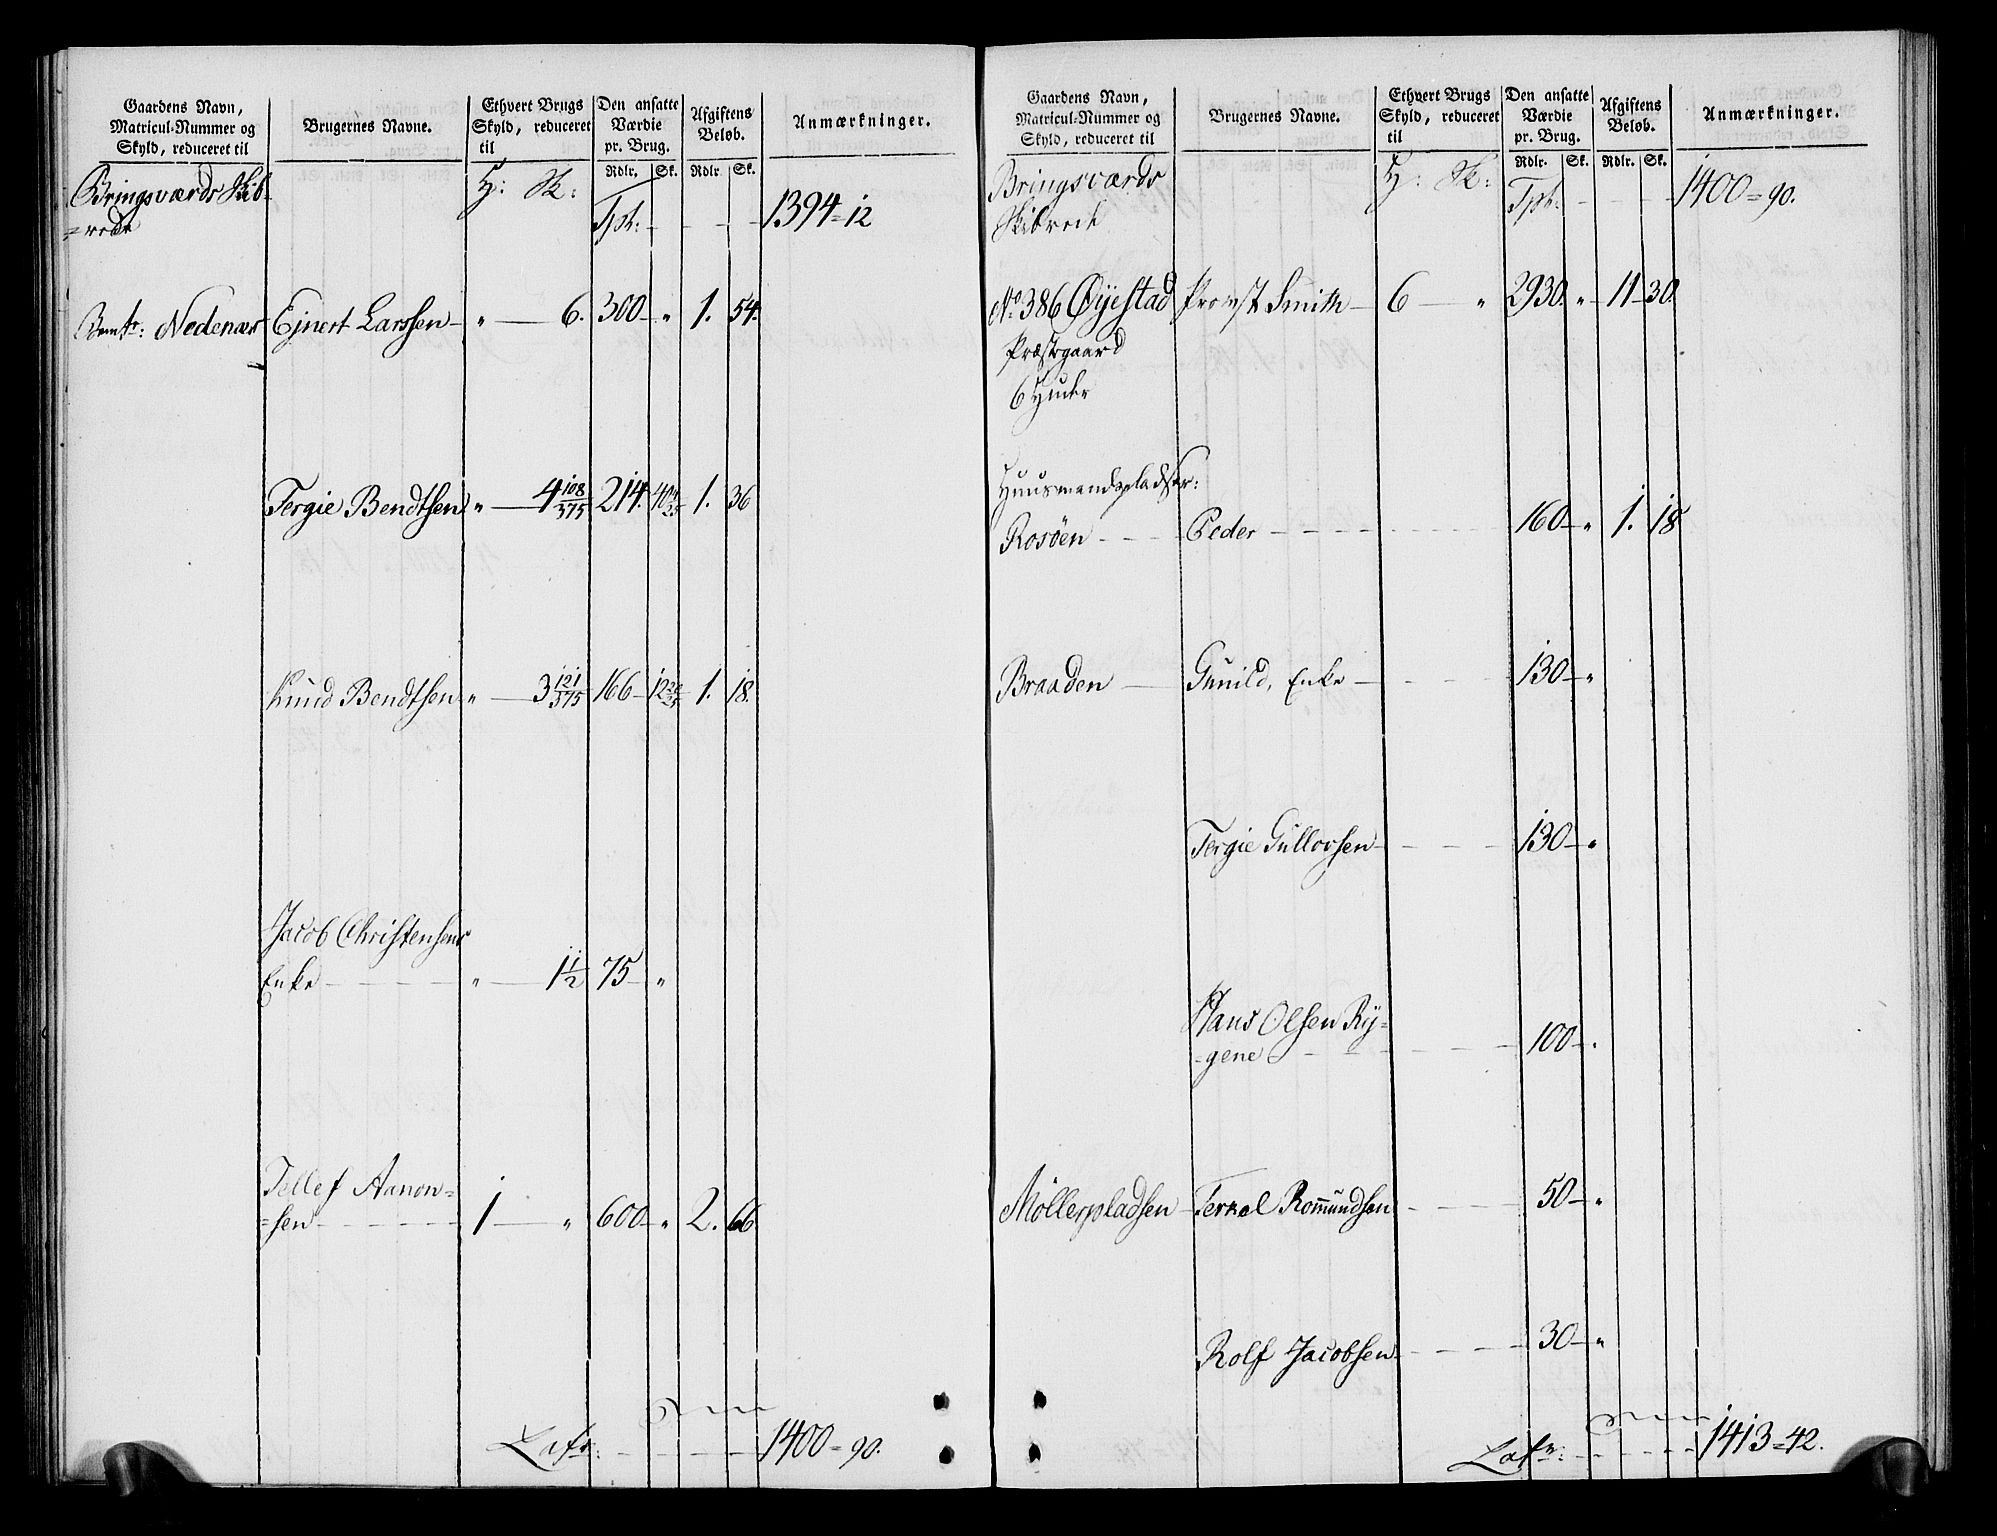 Gaardens Navn,
Matricul-Nummer og
Skyld, reduceret til
Brugernes Navne.
Ethvert Brugs
Skyld, reduceret
til
Den ansatte
Værdie
pr. Brug.
Rdlr. Sk.
Afgiftens
Beløb.
Rdlr. Sk.
Anmærkninger.
Bringsværds Skib-
=rede
H: Sk:
Tpt: - - - 1394=12
Nedenæs Ejnert Larssen - " - 6. 300 - " 1. 54.
Tergie Bendtsen " - 4 108/375 214. 1. 36
Knud Bendtsen - " - 3 121/375 166 - 1. 18.
Jacob Christensens
Enke - - - " - 1 1/2 75 - "
Tellef Aanon=
=sen - - - 1 - " 600 - " 2. 66
Lats: - - - 1400=90.
Gaardens Navn,
Matricul-Nummer og
Skyld, reduceret til
Brugernes Navne.
Ethvert Brugs
Skyld, reduceret
til
Den ansatte
Værdie
pr. Brug.
Rdlr. Sk.
Afgiftens
Beløb.
Rdlr. Sk.
Anmærkninger.
Bringsværds
Skibrede
H: Sk:
Tpt: - - - 1400=90.
No. 386 Øyestad Provst Smith - 6 - " 2930. " 11 - 30.
Præstegaard
6 Huder
Huusmandspladser:
Rosöen - - - Peder - - - 160 - " 1. 18
Braaden - Gunild, Enke - - - 130 - "
Tergie Gullovsen - - - 130 - "
Hans Olsen Ry=
=gene - - - 100 - "
Möllerpladsen - Terkel Romundsen - - - 50 - "
Rolf Jacobsen - - - 30 - "
Lats: - - - 1413=42.